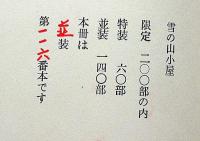 雪の山小屋
限定 二〇〇部の内
特装 六〇部
並装 一四〇部
本冊は
並装
第一一六番本です